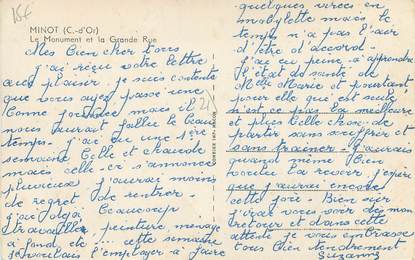 15€
MINOT (C.-d'Or)
Le Monument et la Grande Rue
Mes bien chers tous
j'ai reçu votre lettre
avec plaisir. je suis contente
que vous ayez passé une
bonne journée mais il
nous aurait fallu le beau
temps. j'ai eu une 1ère
semaine belle et chaude
mais celle-ci s'annonce
pluvieuse j'aurai moins
de regret de rentrer
j'ai déjà beaucoup
travaillé, peinture, ménage
à fond etc.... cette semaine
je voulais l'employer à faire
quelques virées en
mobylette mais le
temps n'a pas l'air
d'être d'accord.
j'ai eu peine à apprendre
l'état de santé de
Mlle Marie et pourtant
pour elle que est-elle
n'est ce pas la meilleure
et plus belle chose de
partir sans souffrir et
sans traîner. j'aurais
quand même bien
voulu la revoir, j'espère
que j'aurai encore
cette joie. Bien sûr
j'irai vous voir dès mon
retour et dans cette
attente je vous embrasse
tous bien tendrement
Suzanne